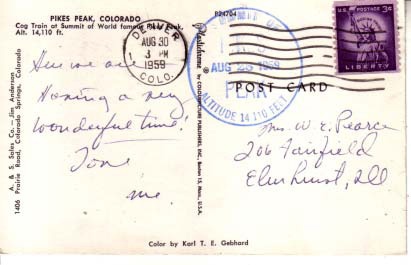 PIKES PEAK, COLORADO
Cog Train at Summit of World famous Pikes Peak.
Alt. 14,110 ft.
B24704
DENVER
AUG 30
3 PM
1959
COLO.
SUMMIT OF
AUG 26 1959
PEAK
ALTITUDE 14,110 FEET
U.S. POSTAGE 3¢
LIBERTY
POST CARD
Here we are
Having a very
wonderful time!
Love
me.
Mrs. W. E. Pearce
206 Fairfield
Elmhurst, Ill
A. & S. Sales Co. — Jim Anderson
1406 Prairie Road, Colorado Springs, Colorado
Plastichrome ® by COLOURPICTURE PUBLISHERS, INC., Boston 15, Mass., U.S.A.
Color by Karl T. E. Gebhard